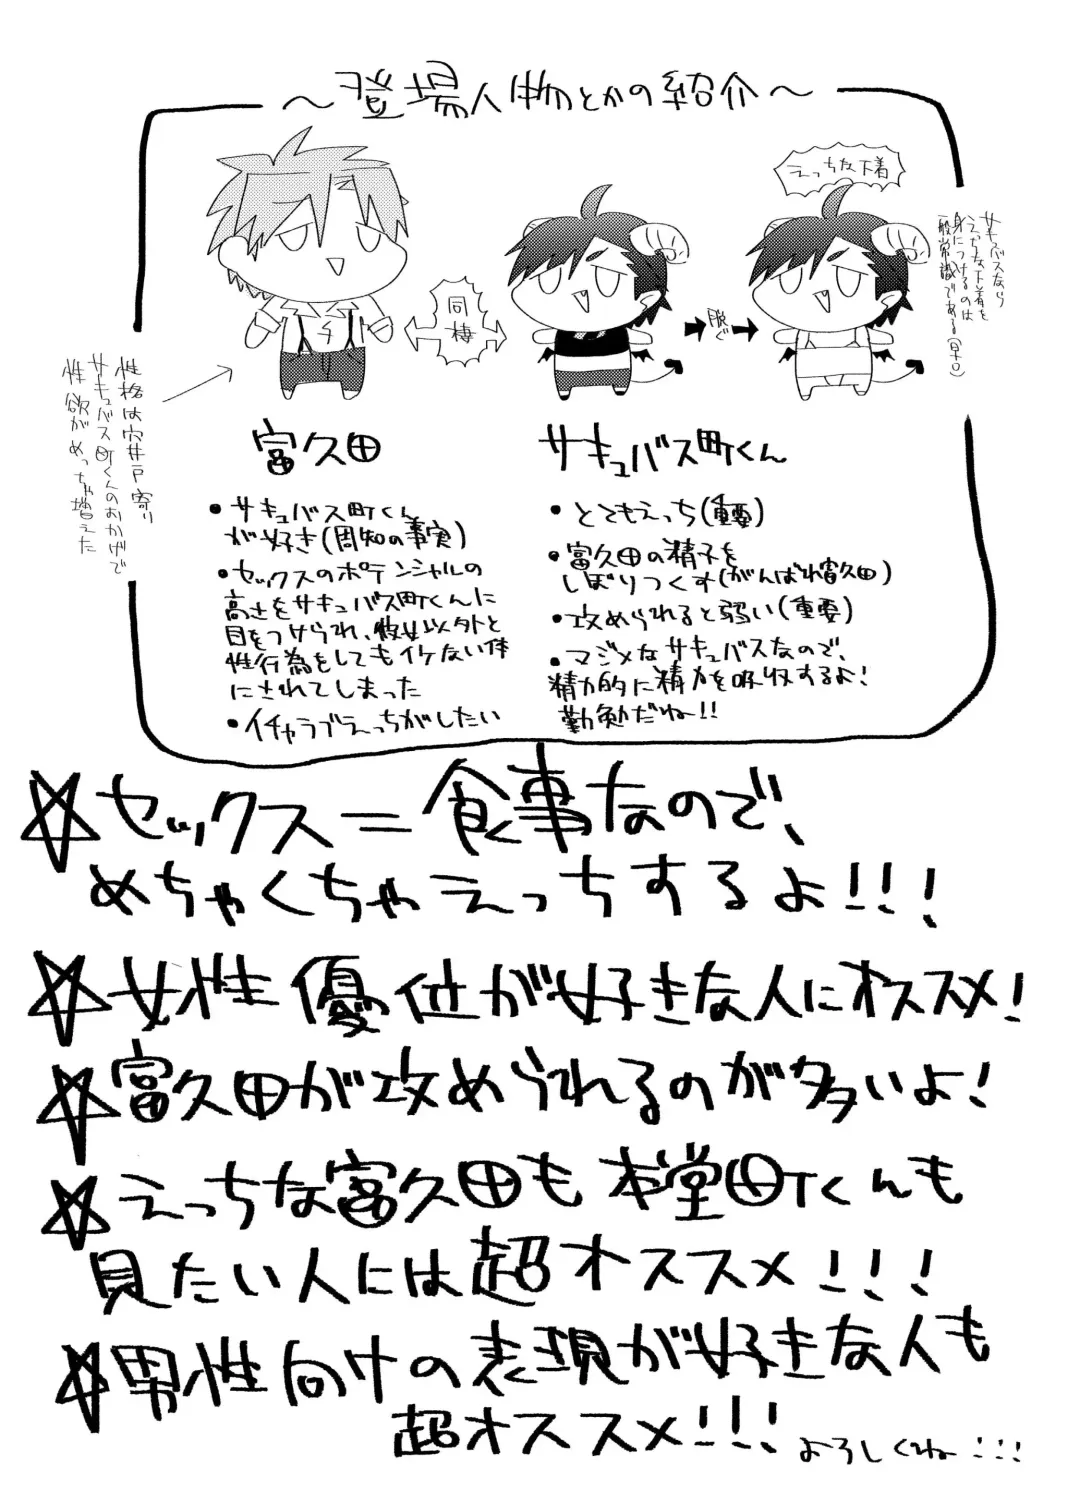 ～登場人物とかの紹介～
えっちな下着
サキュバスなら
えっちな下着を
身につけるのは
一般常識である(早口)
同棲
脱ぐ
性格は穴井戸寄り
サキュバス町くんのおかげで
性欲がめっちゃ増えた
富久田
・サキュバス町くん
が好き(周知の事実)
・セックスのポテンシャルの
高さをサキュバス町くんに
目をつけられ、彼女以外と
性行為をしてもイケない体
にされてしまった
・イチャラブえっちがしたい
サキュバス町くん
・とてもえっち(重要)
・富久田の精子を
しぼりつくす(がんばれ富久田)
・攻められると弱い(重要)
・マジメなサキュバスなので、
精力的に精力を吸収するよ!
勤勉だね!!
☆セックス=食事なので、
めちゃくちゃえっちするよ!!!
☆女性優位が好きな人にオススメ!
☆富久田が攻められるのが多いよ!
☆えっちな富久田も本堂町くんも
見たい人には超オススメ!!!
☆男性向けの表現が好きな人も
超オススメ!!!
よろしくね!!!